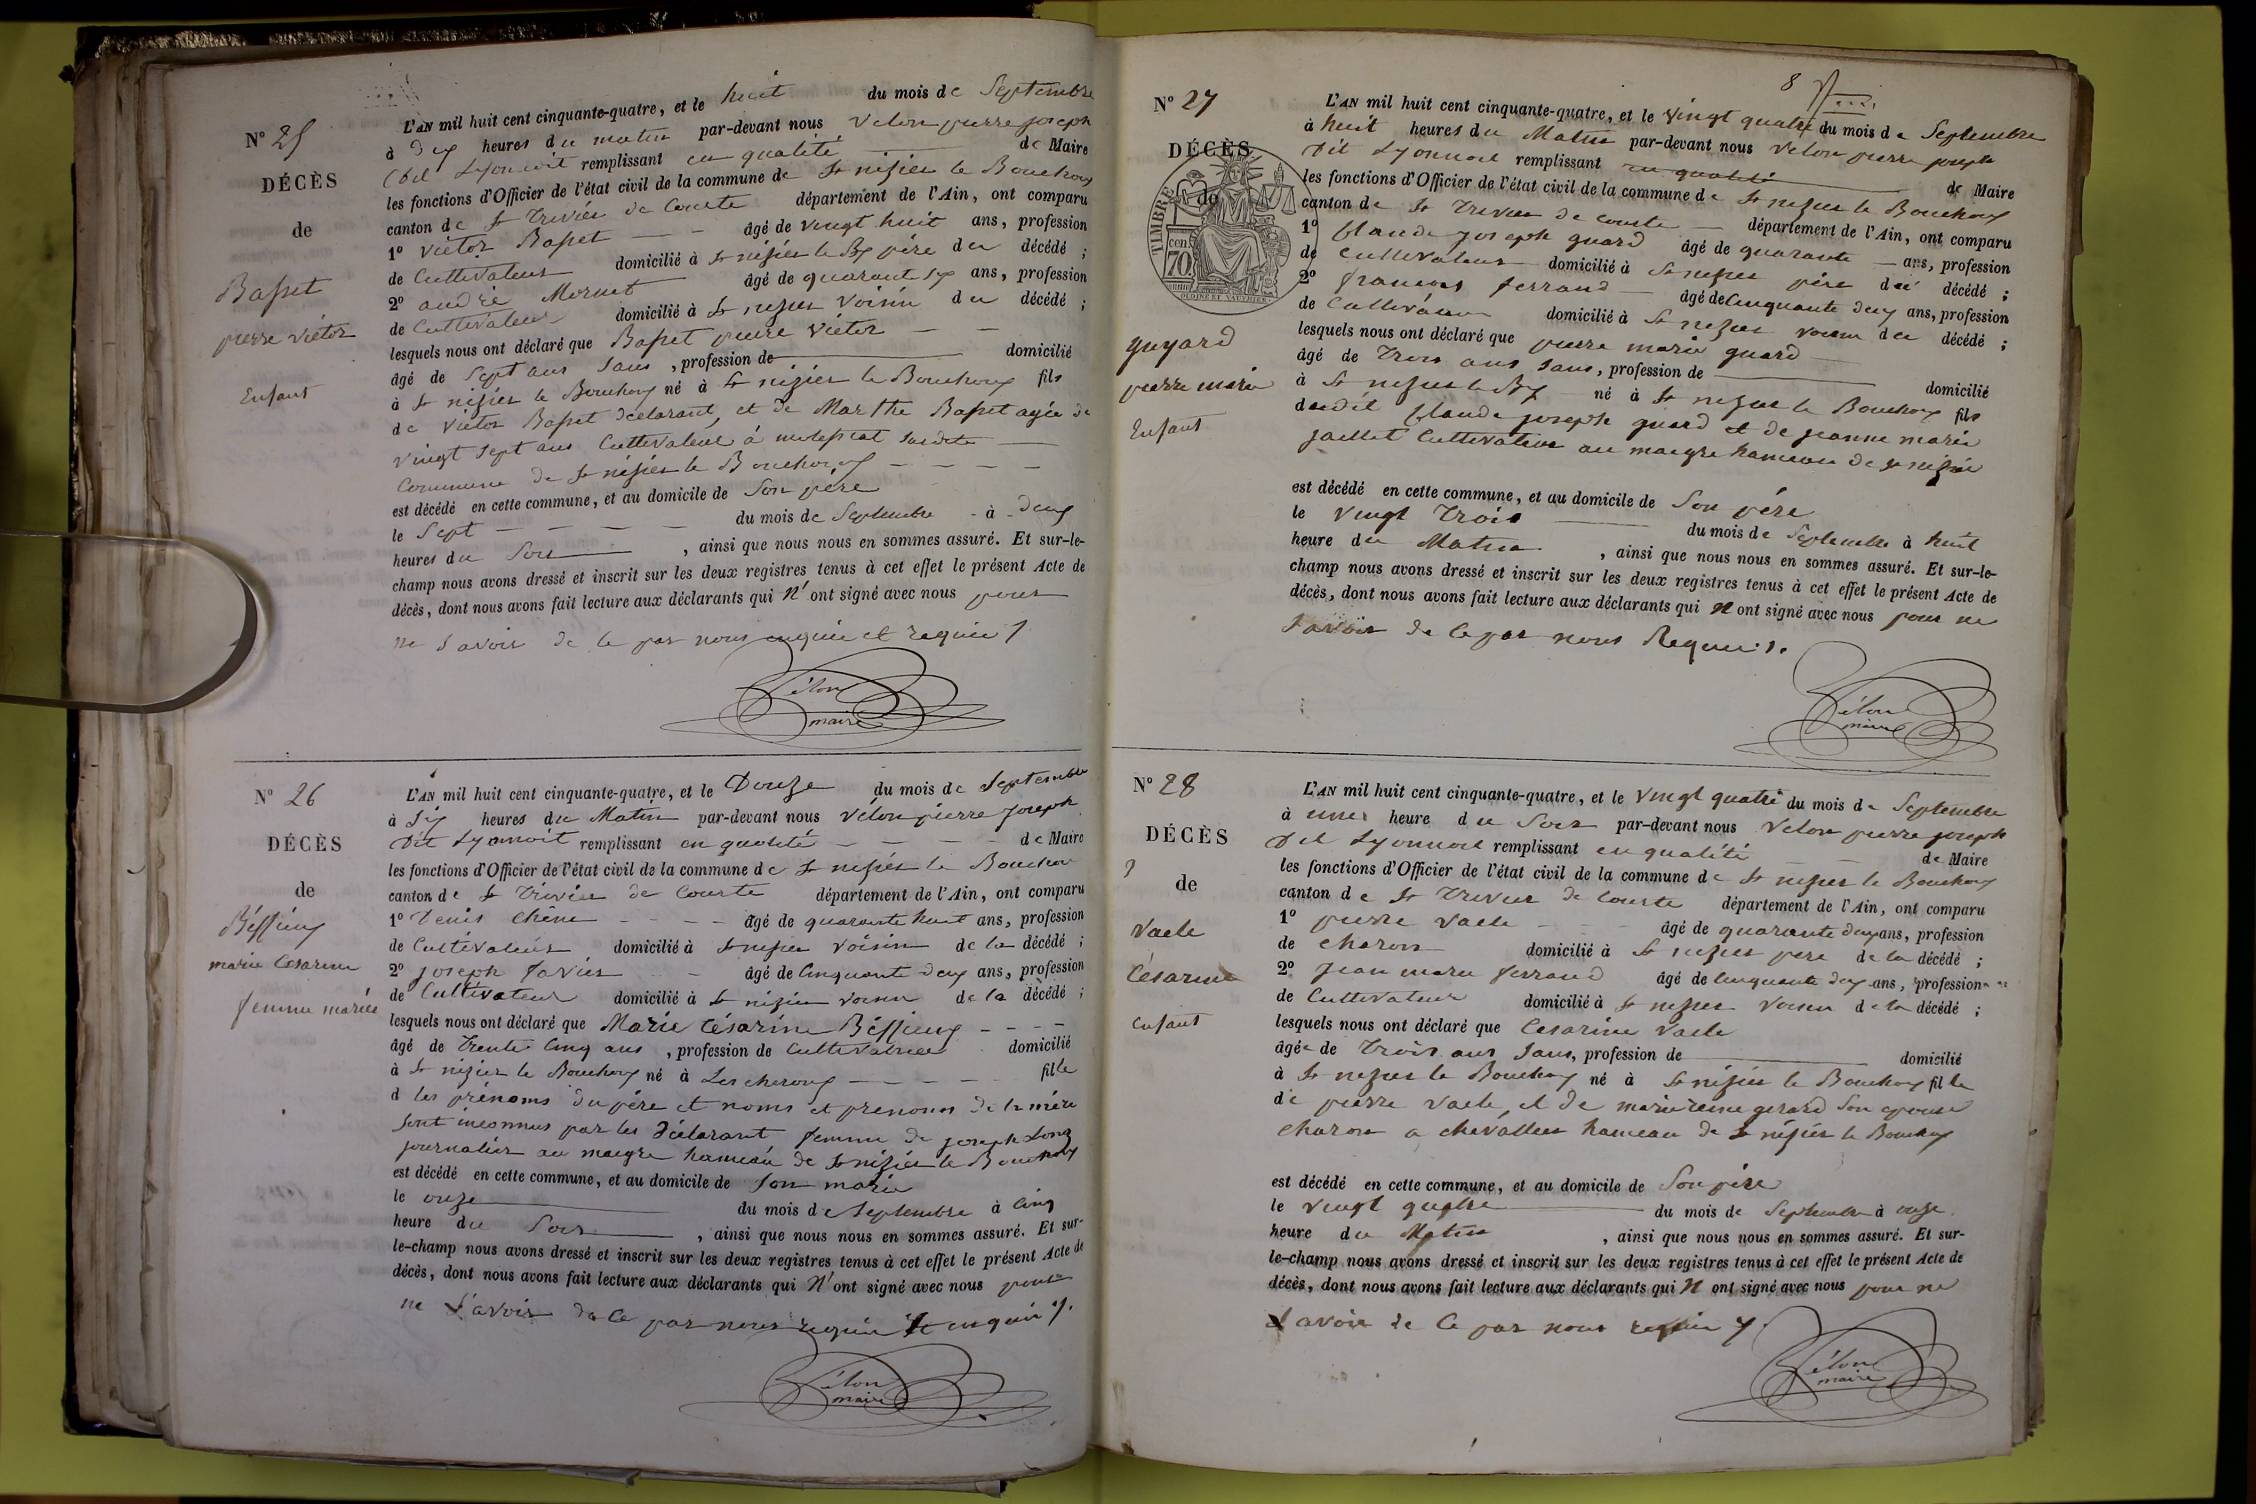 N° 25
DÉCÈS
de
Basset
pierre victor
Enfant
L'AN mil huit cent cinquante-quatre, et le huit du mois de Septembre
à dix heures du matin par-devant nous Velon pierre joseph
dit Lyonnoit remplissant en qualité de Maire
les fonctions d'Officier de l'état civil de la commune de St nizier le Bouchoux
canton de St Trivier de Courte département de l'Ain, ont comparu
1° Victor Basset âgé de vingt huit ans, profession
de Cultivateur domicilié à St nizier le Bx père du décédé ;
2° andré Mornet âgé de quarant six ans, profession
de Cultivateur domicilié à St nizier Voisin du décédé ;
lesquels nous ont déclaré que Basset pierre Victor
âgé de Sept ans Sans , profession de domicilié
à St nizier le Bouchoux né à St nizier le Bouchoux fils
de Victor Basset déclarant, et de Marthe Basset agée de
vingt Sept ans Cultivateur à Susdite
Commune de St nizier le Bouchoux
est décédé en cette commune, et au domicile de Son père
le Sept du mois de Septembre à deux
heures du Soir , ainsi que nous nous en sommes assuré. Et sur-le-
champ nous avons dressé et inscrit sur les deux registres tenus à cet effet le présent Acte de
décès, dont nous avons fait lecture aux déclarants qui n'ont signé avec nous pour
ne Savoir de ce par nous enquis et requis /
Vélon
maire
N° 26
DÉCÈS
de
Béssieux
marie Césarine
femme mariée
L'AN mil huit cent cinquante-quatre, et le Douze du mois de Septembre
à Six heures du Matin par-devant nous Vélon pierre Joseph
Dit Lyonnoit remplissant en qualité de Maire
les fonctions d'Officier de l'état civil de la commune de St nizier le Bouchou
canton de St Trivier de Courte département de l'Ain, ont comparu
1° Denis Chêne âgé de quarante huit ans, profession
de Cultivateur domicilié à St nizier Voisin de la décédé ;
2° joseph favier âgé de Cinquante deux ans, profession
de Cultivateur domicilié à St nizier voisin de la décédé ;
lesquels nous ont déclaré que Marie Césarine Béssieux
âgé de Trente Cinq ans , profession de Cultivatrice domicilié
à St nizier le Bouchoux né à Lescheroux fille
d les prénoms du père et noms et prenoms de la mère
sont inconnus par les déclarant femme de joseph Long
journalier au maigre hameau de St nizier le Bouchoux
est décédé en cette commune, et au domicile de Son marie
le onze du mois de Septembre à Cinq
heure du Soir , ainsi que nous nous en sommes assuré. Et sur-
le-champ nous avons dressé et inscrit sur les deux registres tenus à cet effet le présent Acte de
décès, dont nous avons fait lecture aux déclarants qui n'ont signé avec nous pour
ne Savoir de Ce par nous requis et enquis /.
Vélon
maire
8
N° 27
DÉCÈS
de
TIMBRE
cen
70
guyard
pierre marie
Enfant
L'AN mil huit cent cinquante-quatre, et le vingt quatre du mois de Septembre
à huit heures du Matin par-devant nous Velon pierre joseph
dit Lyonnoit remplissant en qualité de Maire
les fonctions d'Officier de l'état civil de la commune de St nizier le Bouchoux
canton de St Trivier de courte département de l'Ain, ont comparu
1° Claude joseph guard âgé de quarante ans, profession
de Cultivateur domicilié à St nizier père du décédé ;
2° francois ferrand âgé de Cinquante deux ans, profession
de Cultivateur domicilié à St nizier voisin du décédé ;
lesquels nous ont déclaré que pierre marie guard
âgé de Trois ans Sans, profession de domicilié
à St nizier le Bx né à St nizier le Bouchoux fils
dudit Claude joseph guard et de jeanne marie
jaillet Cultivateur au maigre hameau de St nizier
est décédé en cette commune, et au domicile de Son père
le Vingt Trois du mois de Septembre à huit
heure du Matin , ainsi que nous nous en sommes assuré. Et sur-le-
champ nous avons dressé et inscrit sur les deux registres tenus à cet effet le présent Acte de
décès, dont nous avons fait lecture aux déclarants qui n ont signé avec nous pour ne
Savoir de Ce par nous Requis /.
Vélon
maire
N° 28
DÉCÈS
de
Vacle
Césarine
Enfant
L'AN mil huit cent cinquante-quatre, et le Vingt quatre du mois de Septembre
à une heure du Soir par-devant nous Velon pierre joseph
dit Lyonnoit remplissant en qualité de Maire
les fonctions d'Officier de l'état civil de la commune de St nizier le Bouchoux
canton de St Trivier de Courte département de l'Ain, ont comparu
1° pierre Vacle âgé de quarante deux ans, profession
de charon domicilié à St nizier père de la décédé ;
2° Jean marie ferrand âgé de Cinquante deux ans, profession
de Cultivateur domicilié à St nizier Voisin de la décédé ;
lesquels nous ont déclaré que Cesarine Vacle
âgée de Trois ans Sans, profession de domicilié
à St nizier le Bouchoux né à St nizier le Bouchoux fille
de pierre Vacle, et de marie reine gerard Son épouse
charon a chevallier hameau de St nizier le Bouchoux
est décédé en cette commune, et au domicile de Son père
le vingt quatre du mois de Septembre à onze
heure du Matin , ainsi que nous nous en sommes assuré. Et sur-
le-champ nous avons dressé et inscrit sur les deux registres tenus à cet effet le présent Acte de
décès, dont nous avons fait lecture aux déclarants qui n ont signé avec nous pour ne
Savoir de Ce par nous requis /.
Vélon
maire